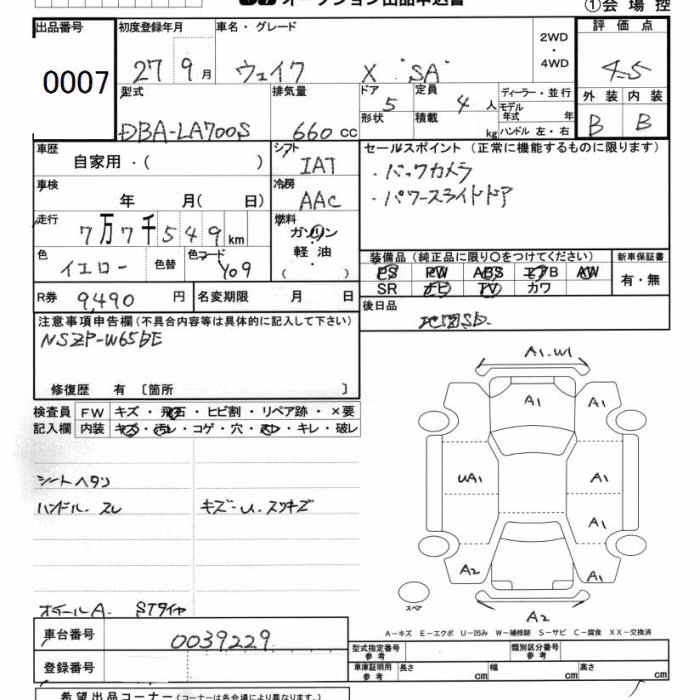 オークション出品申込書 ①会場控
出品番号 0007
初度登録年月 27年9月
車名・グレード ウェイク X "SA"
2WD・4WD
評価点 4.5
外装 B 内装 B
型式 DBA-LA700S
排気量 660cc
ドア 5 定員 4人
形状 積載 kg
ディーラー・並行
モデル年式 年
ハンドル 左・右
車歴 自家用・( )
シフト IAT
車検 年 月( 日)
冷房 AAC
走行 7万7千549km
燃料 ガソリン 軽油 ( )
色 イエロー 色替 色コード Y09
R券 9,490円 名変期限 月 日
セールスポイント(正常に機能するものに限ります)
・バックカメラ
・パワースライドドア
装備品(純正品に限り〇をつけてください) 新車保証書
PS PW ABS エアB AW 有・無
SR ナビ TV カワ
後日品 地図SD.
注意事項申告欄(不具合内容等は具体的に記入して下さい)
NSZP-W65DE
修復歴 有 〔箇所 〕
検査員 FW キズ・飛石・ヒビ割・リペア跡・×要
記入欄 内装 キズ・汚レ・コゲ・穴・スレ・キレ・破レ
シートヘタリ
ハンドル.スレ キズ-U.スリキズ
オイールA. STタイヤ
A1.W1
A1 A1
UA1 A1
A1
A2 A1
スペア A2
A-キズ E-エクボ U-凹み W-補修跡 S-サビ C-腐食 XX-交換済
車台番号 0039229
登録番号
型式指定番号 参考 類別区分番号 参考
車庫証明用 参考 長さ cm 幅 cm 高さ cm
希望出品コーナー(コーナーは各会場により異なります。)